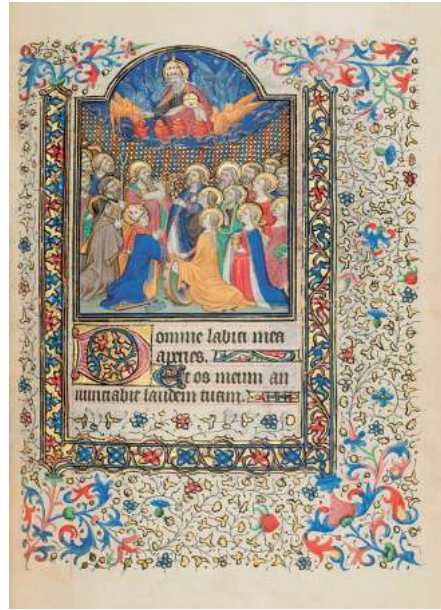 Domine labia mea
aperies.
Et os meum an
nunciabit laudem tuam.